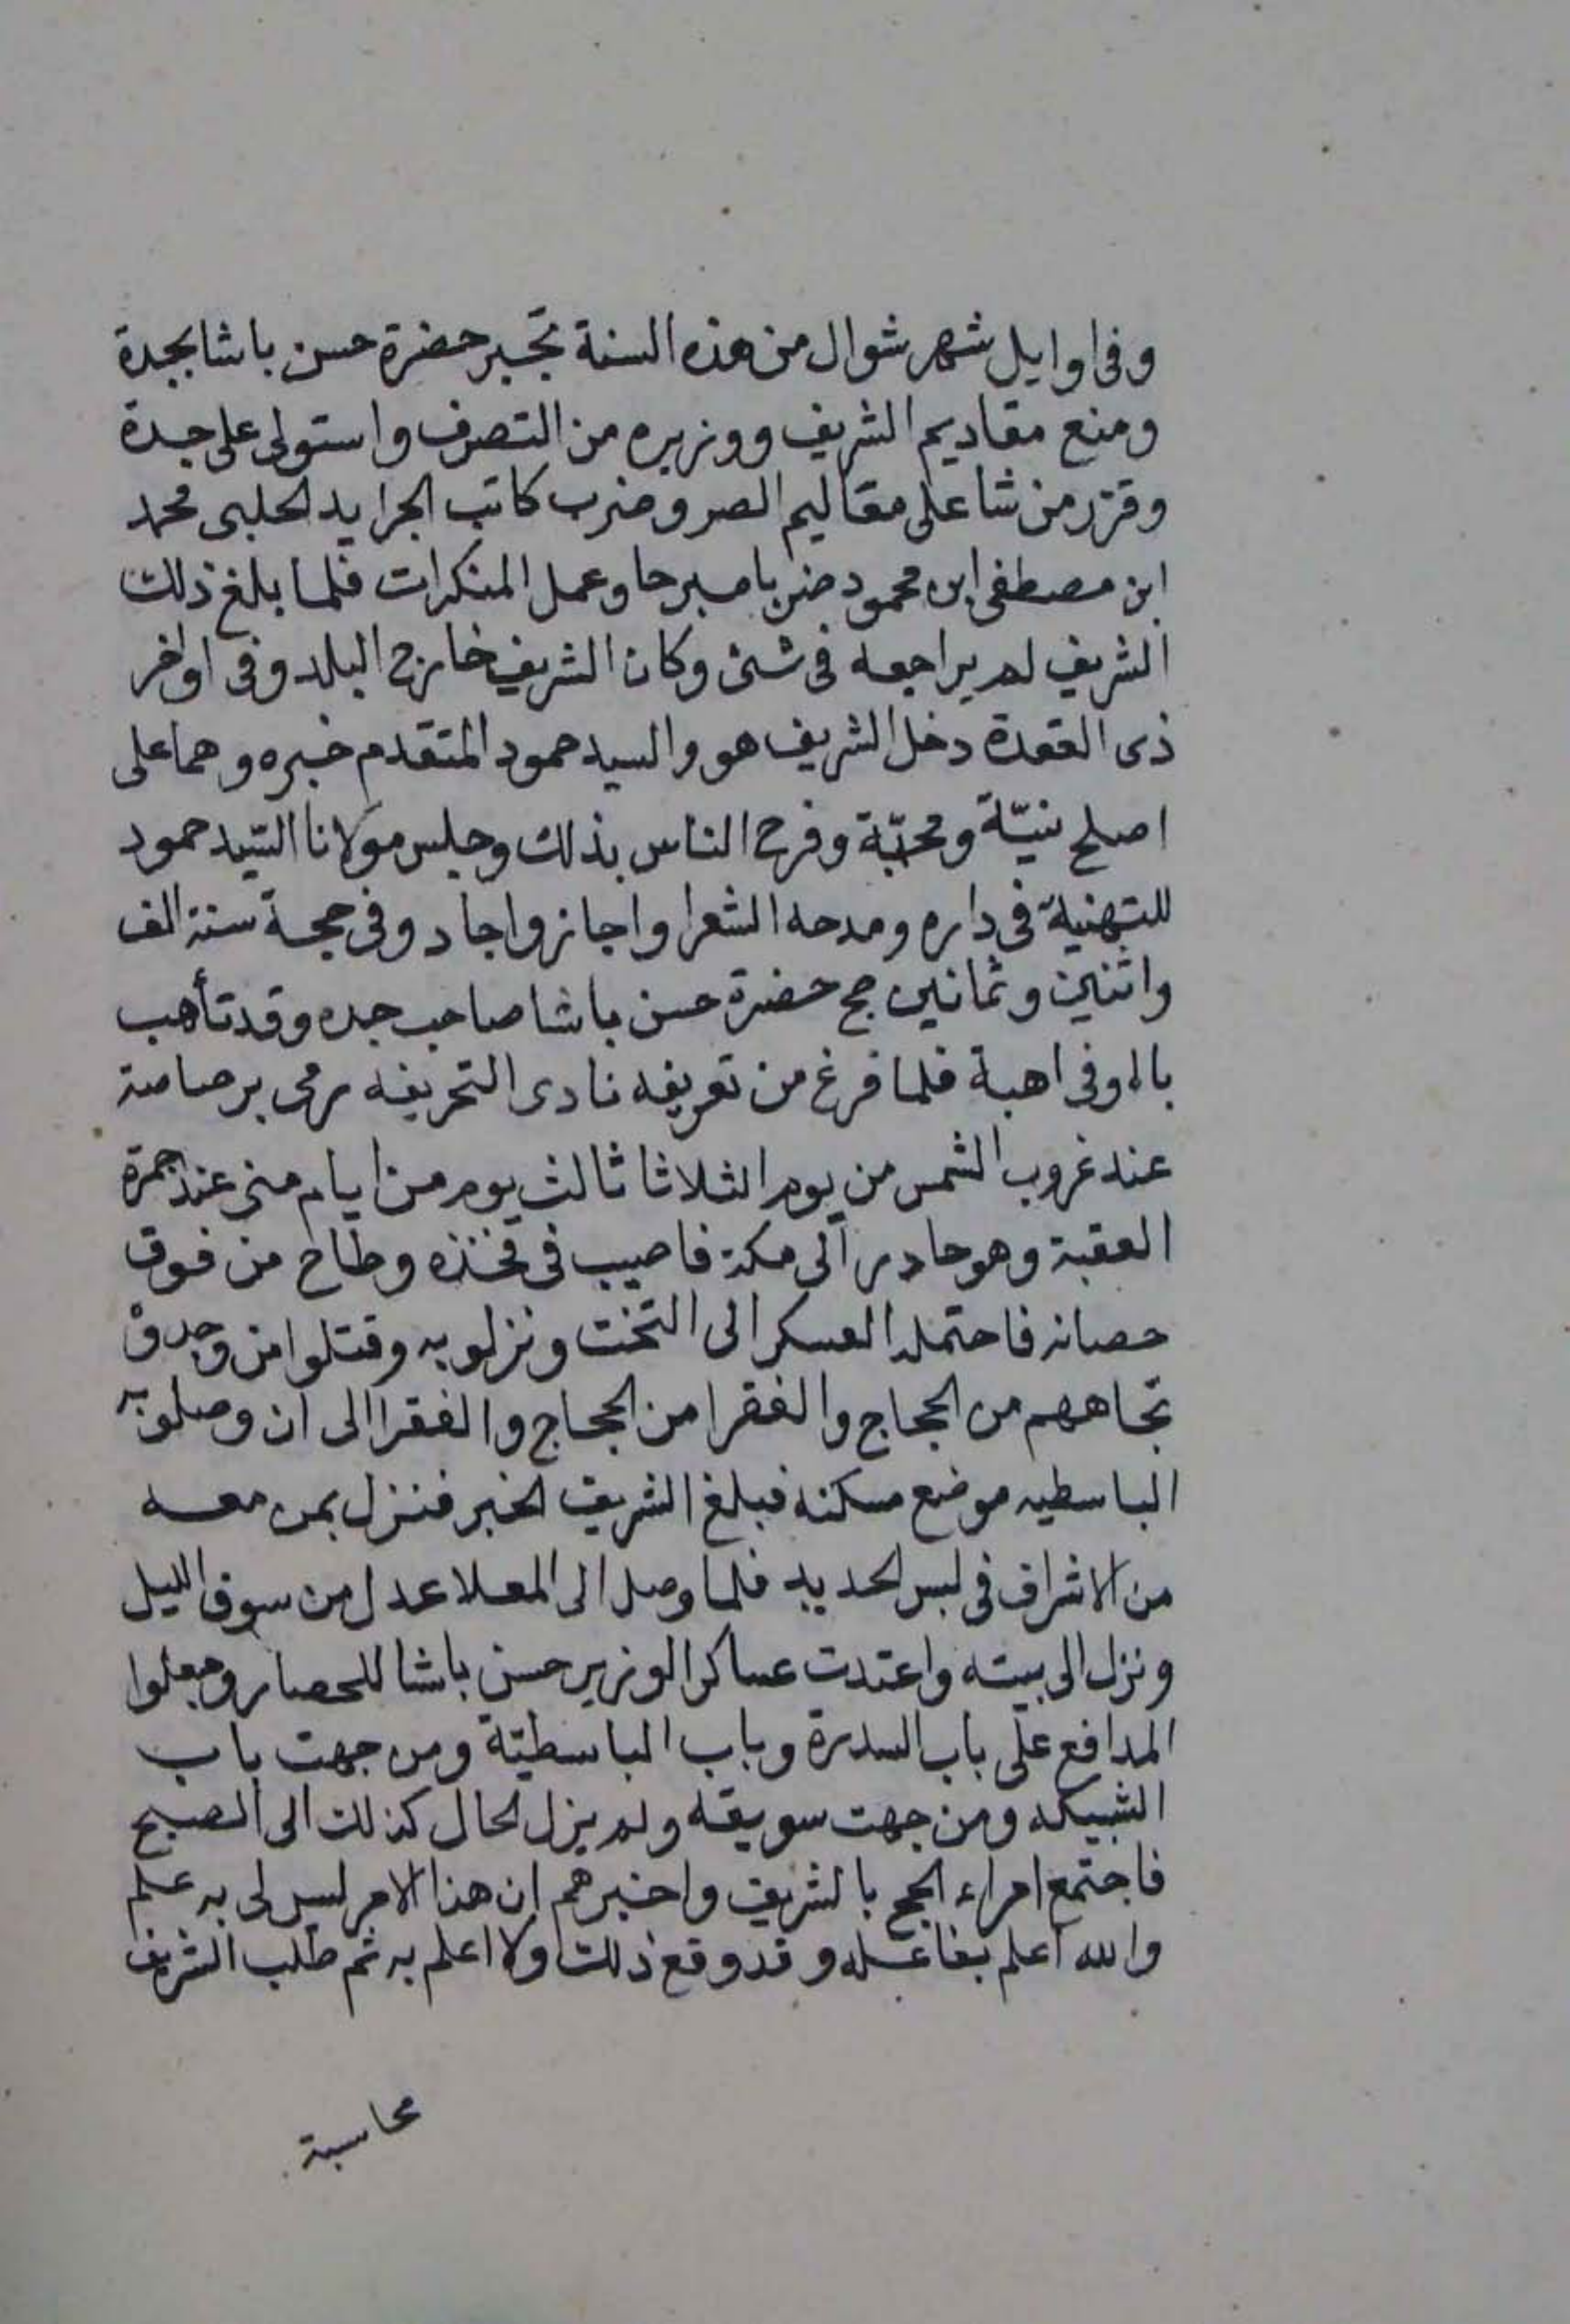 وفى اوايل شهر شوال من هذه السنة تجبر حضرة حسن باشا بجدة
ومنع مقاديم الشريف ووزيره من التصرف واستولى على جدة
وقرر من شا على مقاليم الصر وضرب كاتب الجرايد الحلبى محمد
ابن مصطفى ابن محمود ضربا مبرحا وعمل المنكرات فلما بلغ ذلك
الشريف لم يراجعه فى شئ وكان الشريف خارج البلد وفى اواخر
ذى القعدة دخل الشريف هو والسيد حمود المتقدم خبره وهما على
اصلح نيّة ومحبّة وفرح الناس بذلك وجلس مولانا السّيد حمود
للتهنية فى داره ومدحه الشعرا واجاز واجاد وفى حجة سنة الف
واثنين وثمانين حج حضرة حسن باشا صاحب جده وقد تأهب
بالاوفى اهبة فلما فرغ من تعريفه نادى التحريفه رمى برصاصة
عند غروب الشمس من يوم الثلاثا ثالث يوم من ايام منى عند جمرة
العقبة وهو حادر الى مكة فاصيب فى فخذه وطاح من فوق
حصانه فاحتمله العسكر الى التخت ونزلو به وقتلوا من وجدوْ
تجاههم من الحجاج والفقرا من الحجاج والفقرا الى ان وصلو به
الباسطيه موضع مسكنه فبلغ الشريف الخبر فنزل بمن معه
من الاشراف فى لبس الحديد فلما وصل الى المعلا عدل من سوق الليل
ونزل الى بيته واعتدت عساكر الوزير حسن باشا للحصار وجعلوا
المدافع على باب السدرة وباب الباسطيّة ومن جهت باب
الشبيكه ومن جهت سويقه ولم يزل الحال كذلك الى الصبح
فاجتمع امراء الحج بالشريف واخبرهم ان هذا الامر ليس لى به علم
والله اعلم بفاعله وقد وقع ذلك ولا اعلم به ثم طلب الشريف
محاسبة